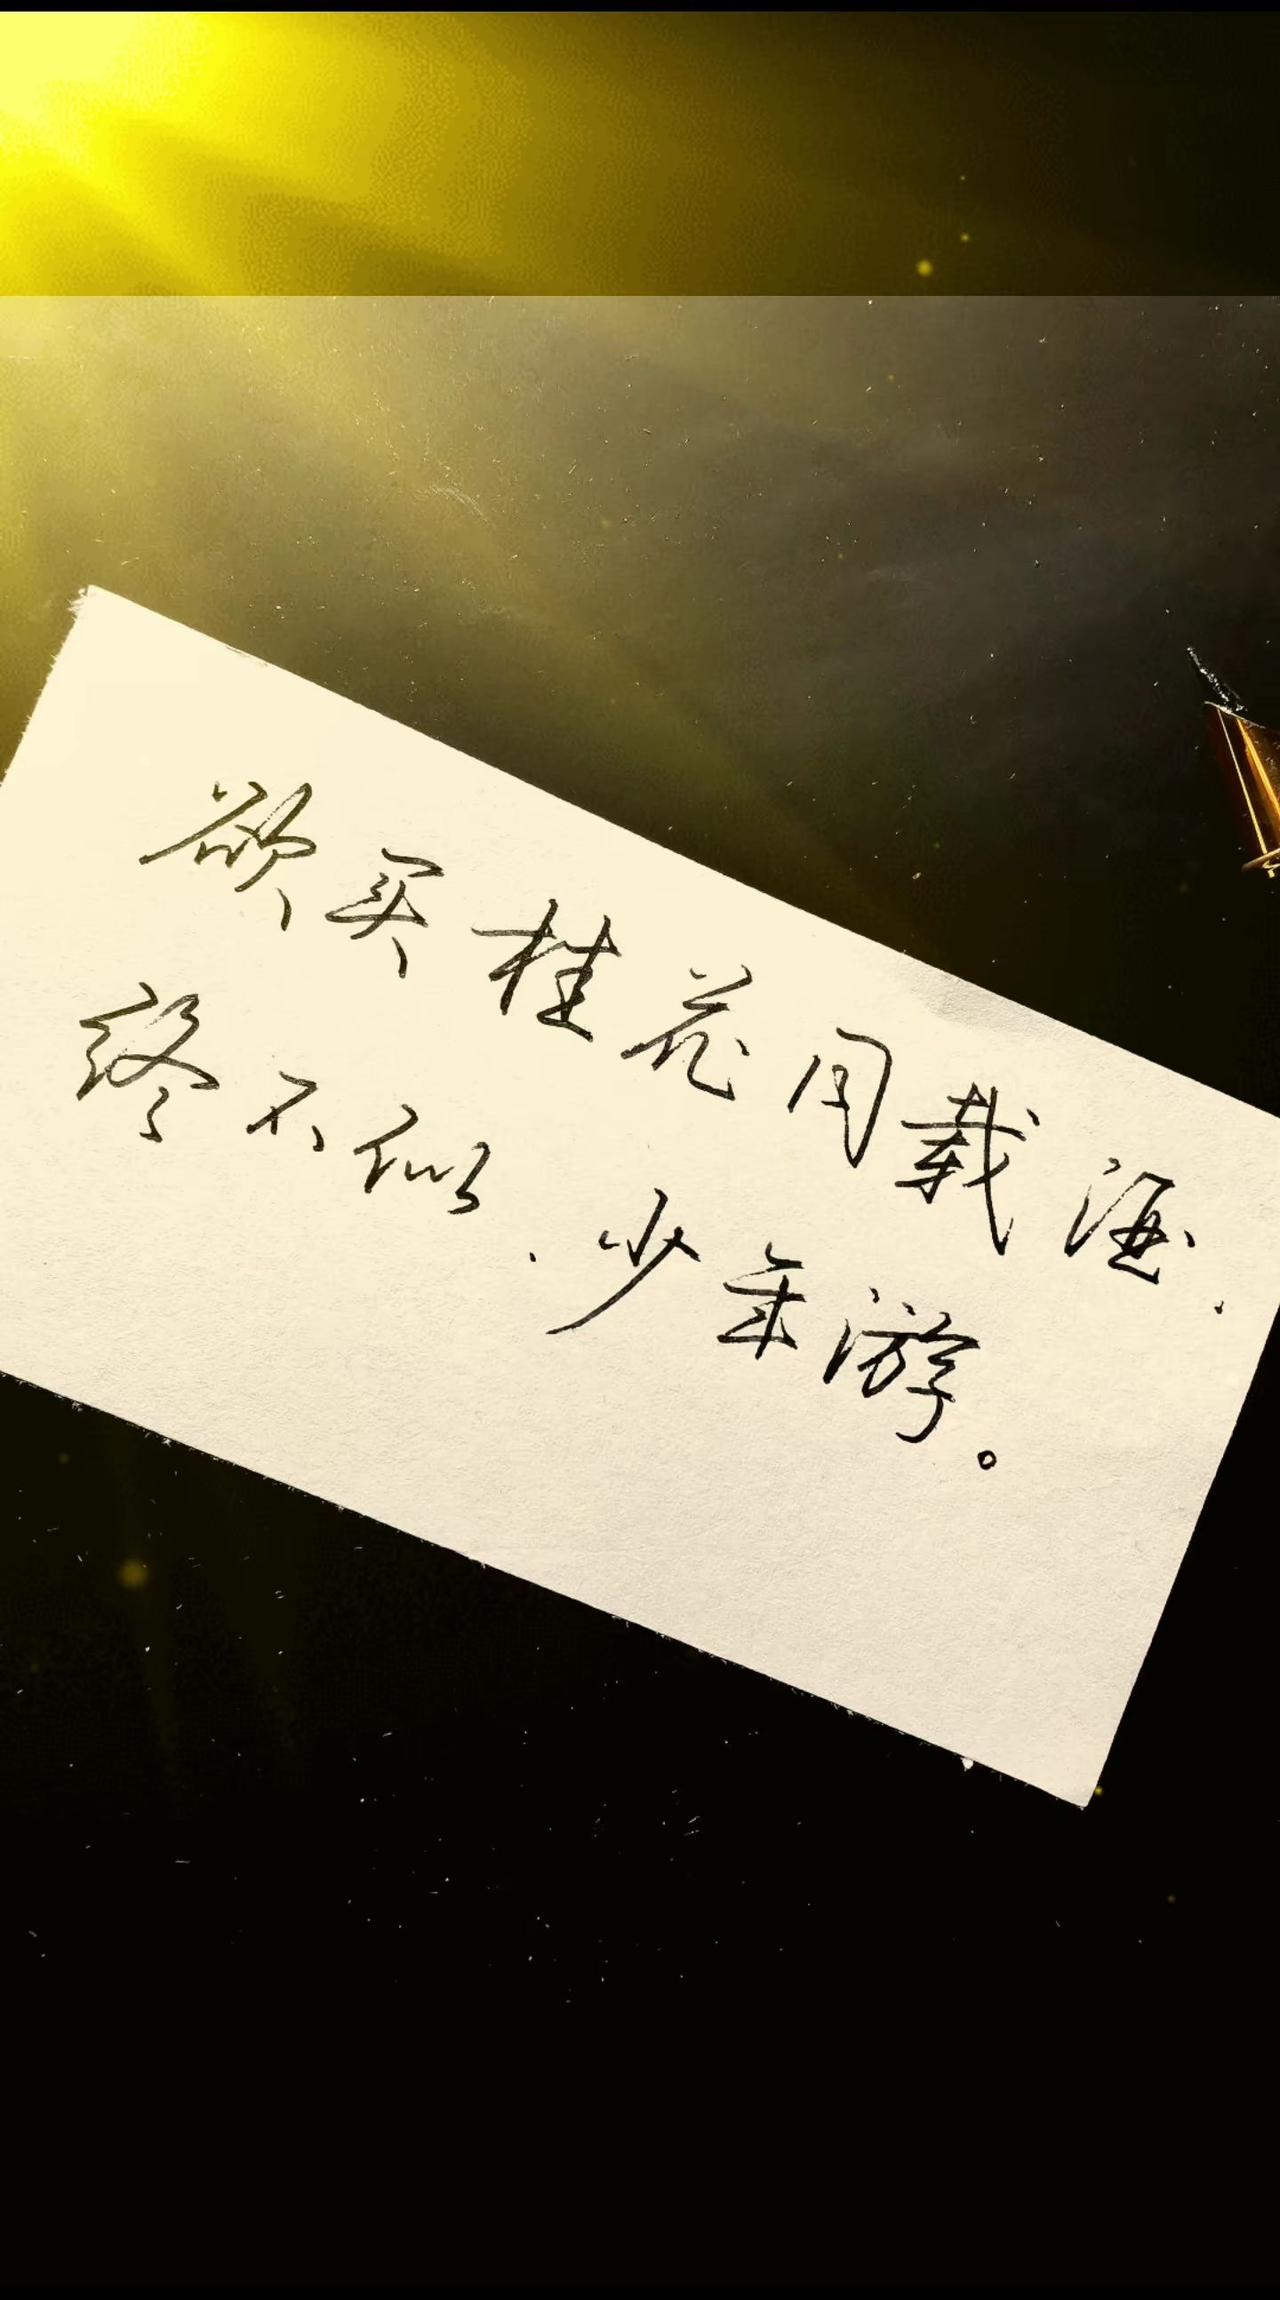 欲买桂花同载酒.
终不似.少年游。